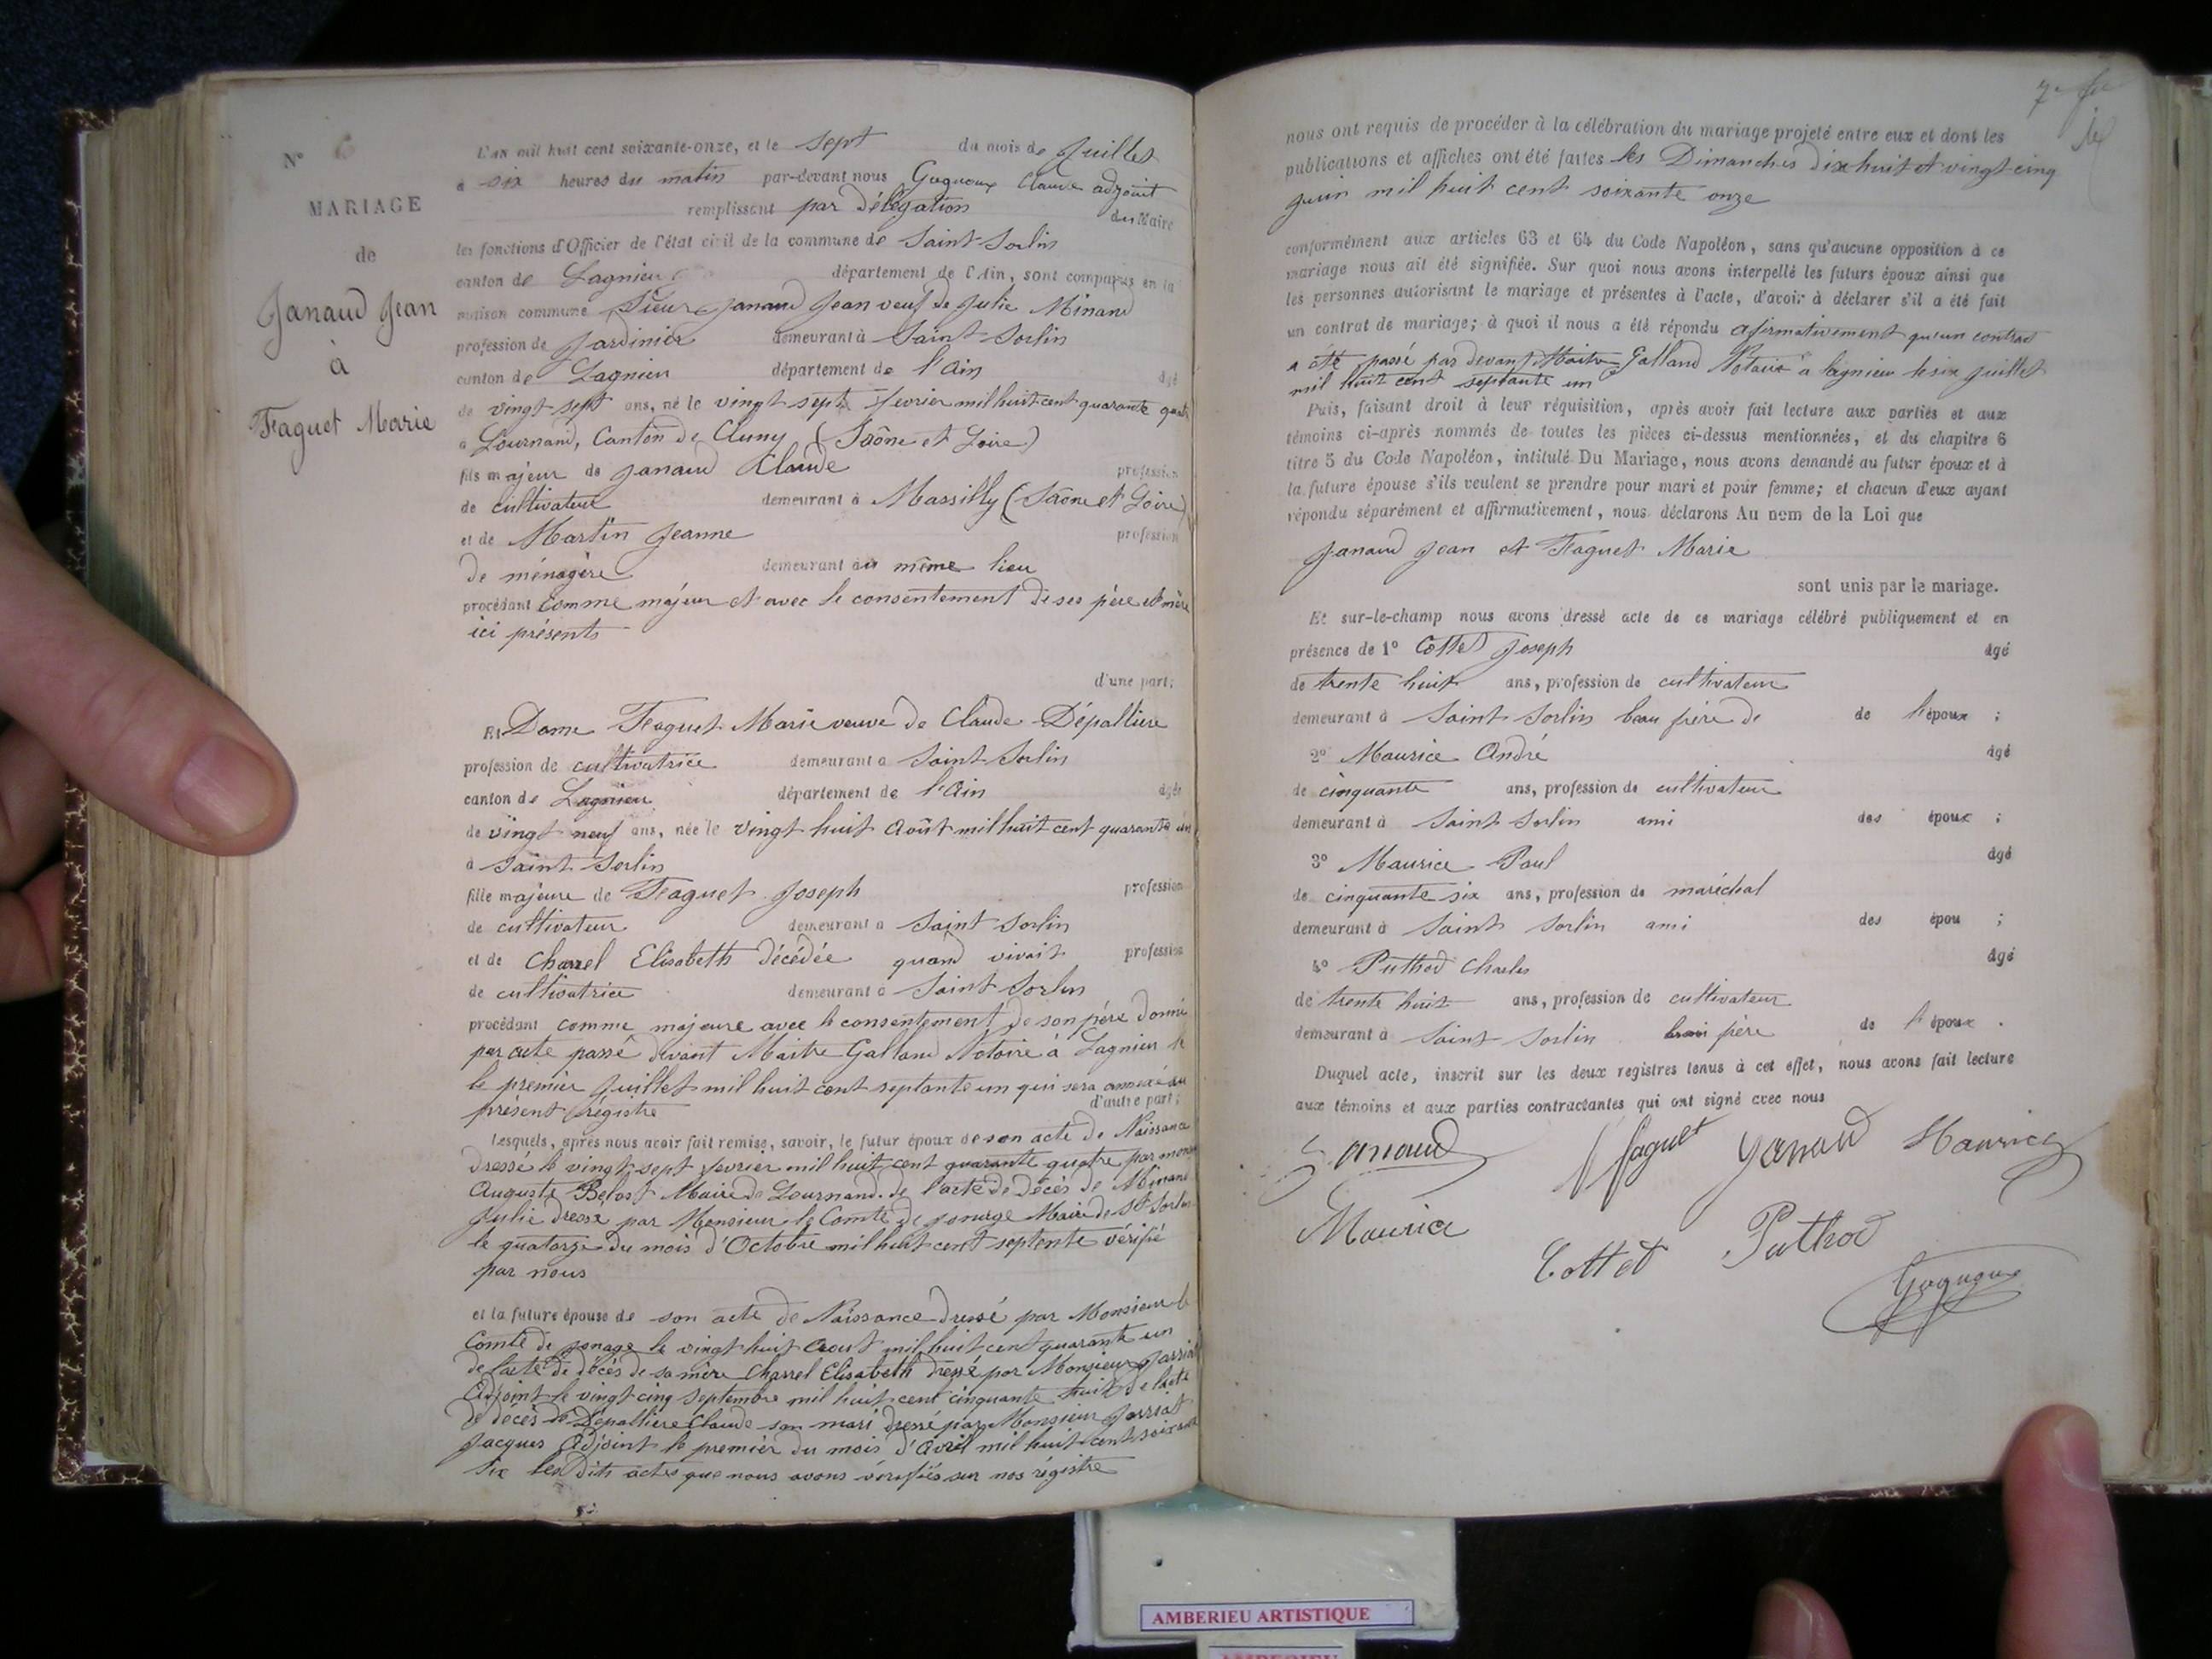 N° 6
MARIAGE
de
Janaud Jean
à
Faguet Marie
L'AN mil huit cent soixante-onze, et le sept du mois de Juillet
à six heures du matin par-devant nous Guguoux Claude adjoint
remplissant par Délégation du Maire
les fonctions d'Officier de l'état civil de la commune de Saint-Sorlin
canton de Lagnieu département de l'Ain, sont comparus en la
maison commune Sieur Janaud Jean veuf de Julie Minand
profession de Jardinier demeurant à Saint Sorlin
canton de Lagnieu département de l'Ain âgé
de vingt sept ans, né le vingt sept fevrier mil huit cent quarante quatre
à Lournand, Canton de Cluny (Saône et Loire)
fils majeur de Janaud Claude profession
de cultivateur demeurant à Massilly (Saône et Loire)
et de Martin Jeanne profession
de ménagère demeurant au même lieu
procédant comme majeur et avec le consentement de ses père et mère
ici présents
d'une part;
Et Dame Faguet Marie veuve de Claude Dépalliere
profession de cultivatrice demeurant à Saint Sorlin
canton de Lagnieu département de l'Ain âgée
de vingt neuf ans, née le vingt huit Août mil huit cent quarante un
à Saint Sorlin
fille majeure de Faguet Joseph profession
de cultivateur demeurant à Saint Sorlin
et de Charrel Elisabeth décédée quand vivait profession
de cultivatrice demeurant à Saint Sorlin
procédant comme majeure avec le consentement de son père donné
par acte passé devant Maitre Galland Notaire à Lagnieu le
le premier Juillet mil huit cent septante un qui sera annexé au
présent régistre d'autre part;
Lesquels, après nous avoir fait remise, savoir, le futur époux de son acte de Naissance
dressé le vingt sept fevrier mil huit cent quarante quatre par
Auguste Belost Maire de Lournand. de l'acte de décès de Minand
Julie dressé par Monsieur le Comte de Jonage Maire de St Sorlin
le quatorze du mois d'Octobre mil huit cent septente vérifié
par nous
et la future épouse de son acte de Naissance dressé par Monsieur le
Comte de Jonage le vingt huit Aout mil huit cent quarante un
de l'acte de décès de sa mère Charrel Elisabeth dressé par Monsieur Jarriat
Adjoint le vingt cinq Septembre mil huit cent cinquante huit de l'acte
de décès de Depalliere Claude son mari dressé par Monsieur Jarriat
Jacques Adjoint le premier du mois d'Avril mil huit cent soixante
six les dits actes que nous avons vérifiés sur nos régistre
nous ont requis de procéder à la célébration du mariage projeté entre eux et dont les
publications et affiches ont été faites les Dimanches dix huit et vingt cinq
juin mil huit cent soixante onze
conformément aux articles 63 et 64 du Code Napoléon, sans qu'aucune opposition à ce
mariage nous ait été signifiée. Sur quoi nous avons interpellé les futurs époux ainsi que
les personnes autorisant le mariage et présentes à l'acte, d'avoir à déclarer s'il a été fait
un contrat de mariage; à quoi il nous a été répondu afirmativement qu'un contrat
a été passé par devant Maitre Galland Notaire à lagnieu le six juillet
mil huit cent septante un
Puis, faisant droit à leur réquisition, après avoir fait lecture aux parties et aux
témoins ci-après nommés de toutes les pièces ci-dessus mentionnées, et du chapitre 6
titre 5 du Code Napoléon, intitulé Du Mariage, nous avons demandé au futur époux et à
la future épouse s'ils veulent se prendre pour mari et pour femme; et chacun d'eux ayant
répondu séparément et affirmativement, nous déclarons Au nom de la Loi que
Janaud Jean et Faguet Marie
sont unis par le mariage.
Et sur-le-champ nous avons dressé acte de ce mariage célébré publiquement et en
présence de 1° Cottet Joseph âgé
de trente huit ans, profession de cultivateur
demeurant à Saint Sorlin beau frère de de l'époux ;
2° Maurice André âgé
de cinquante ans, profession de cultivateur
demeurant à Saint Sorlin ami des époux ;
3° Maurice Paul âgé
de cinquante six ans, profession de maréchal
demeurant à Saint Sorlin ami des épou ;
4° Puthod Charles âgé
de trente huit ans, profession de cultivateur
demeurant à Saint Sorlin beau frère de l'époux .
Duquel acte, inscrit sur les deux registres tenus à cet effet, nous avons fait lecture
aux témoins et aux parties contractantes qui ont signé avec nous
Janaud M faguet Janaud Maurice
Maurice
Cottet Puthod
Guguoux
AMBERIEU ARTISTIQUE